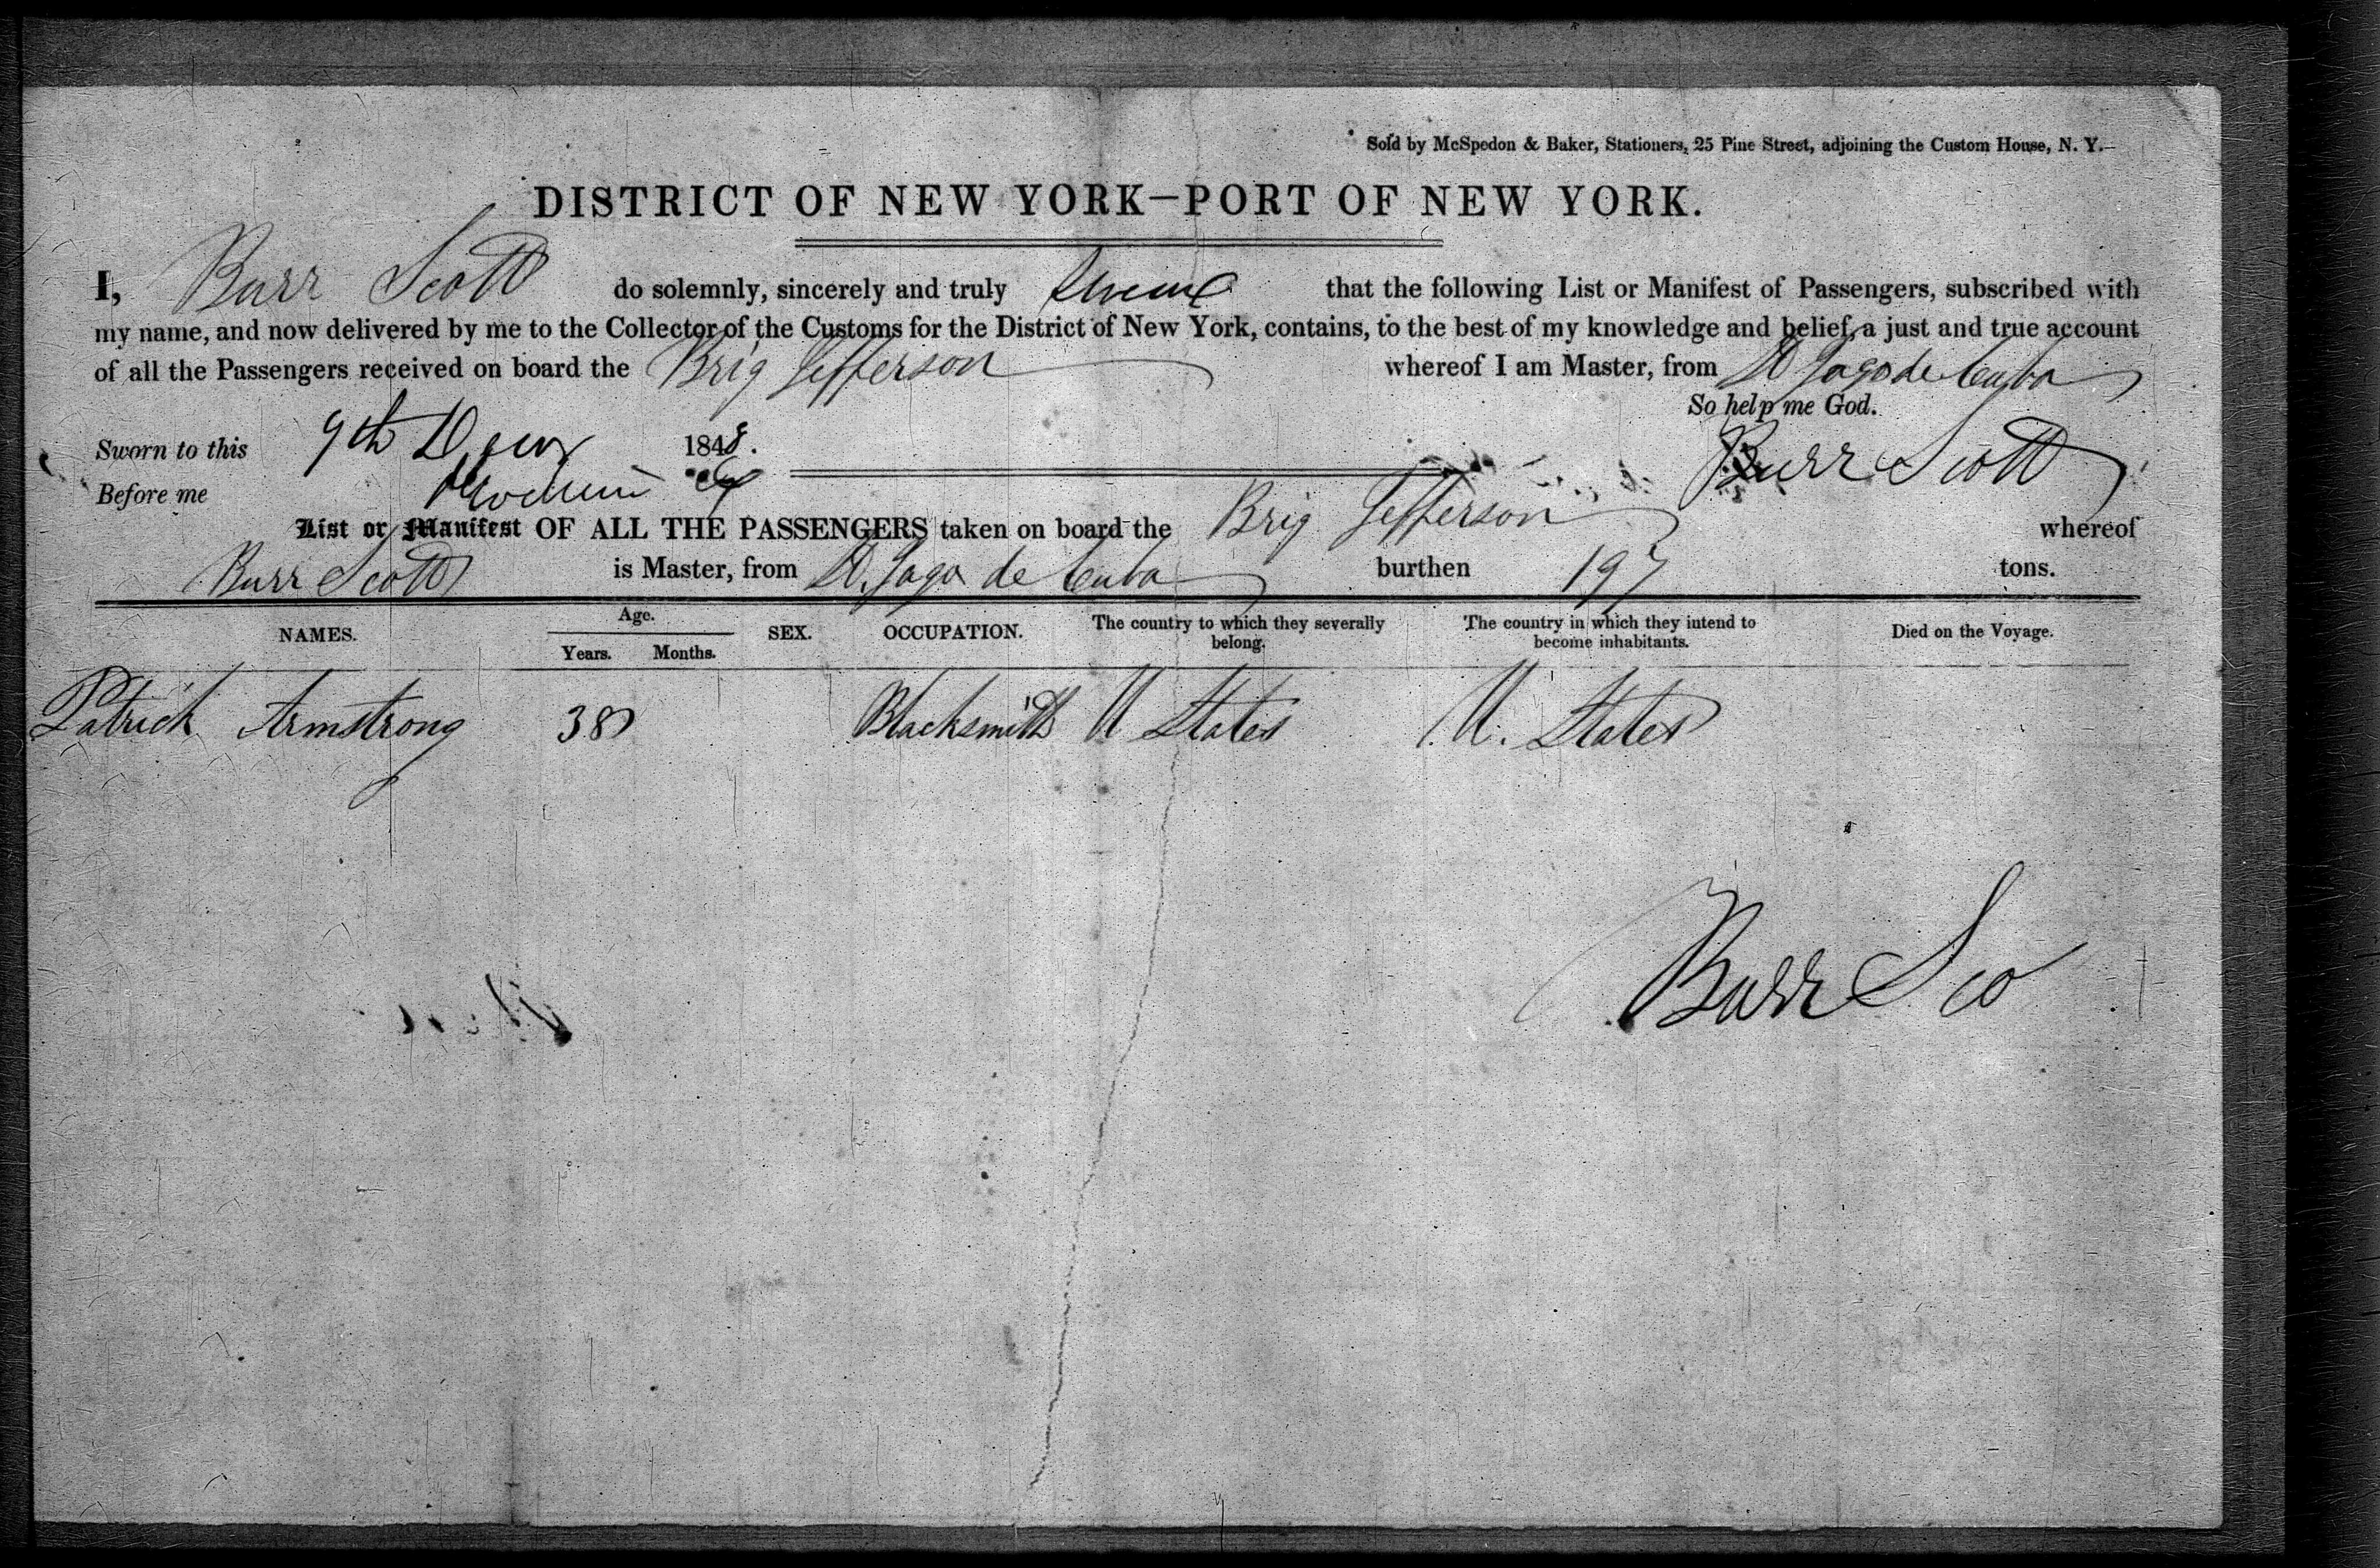 Sold by McSpedon & Baker, Stationers, 25 Pine Street, adjoining the Custom House, N. Y.
DISTRICT OF NEW YORK—PORT OF NEW YORK.
I, Burr Scott do solemnly, sincerely and truly swear that the following List or Manifest of Passengers, subscribed with
my name, and now delivered by me to the Collector of the Customs for the District of New York, contains, to the best of my knowledge and belief, a just and true account
of all the Passengers received on board the Brig Jefferson whereof I am Master, from St Jago de Cuba
So help me God.
Sworn to this 9th 1848. Burr Scott
Before me
List or Manifest OF ALL THE PASSENGERS taken on board the Brig Jefferson whereof
Burr Scott is Master, from St. Jago de Cuba burthen 197 tons.
NAMES. Age. Years. Months. SEX. OCCUPATION. The country to which they severally belong. The country in which they intend to become inhabitants. Died on the Voyage.
Patrick Armstrong 38 Blacksmith U States U. States
Burr Sco